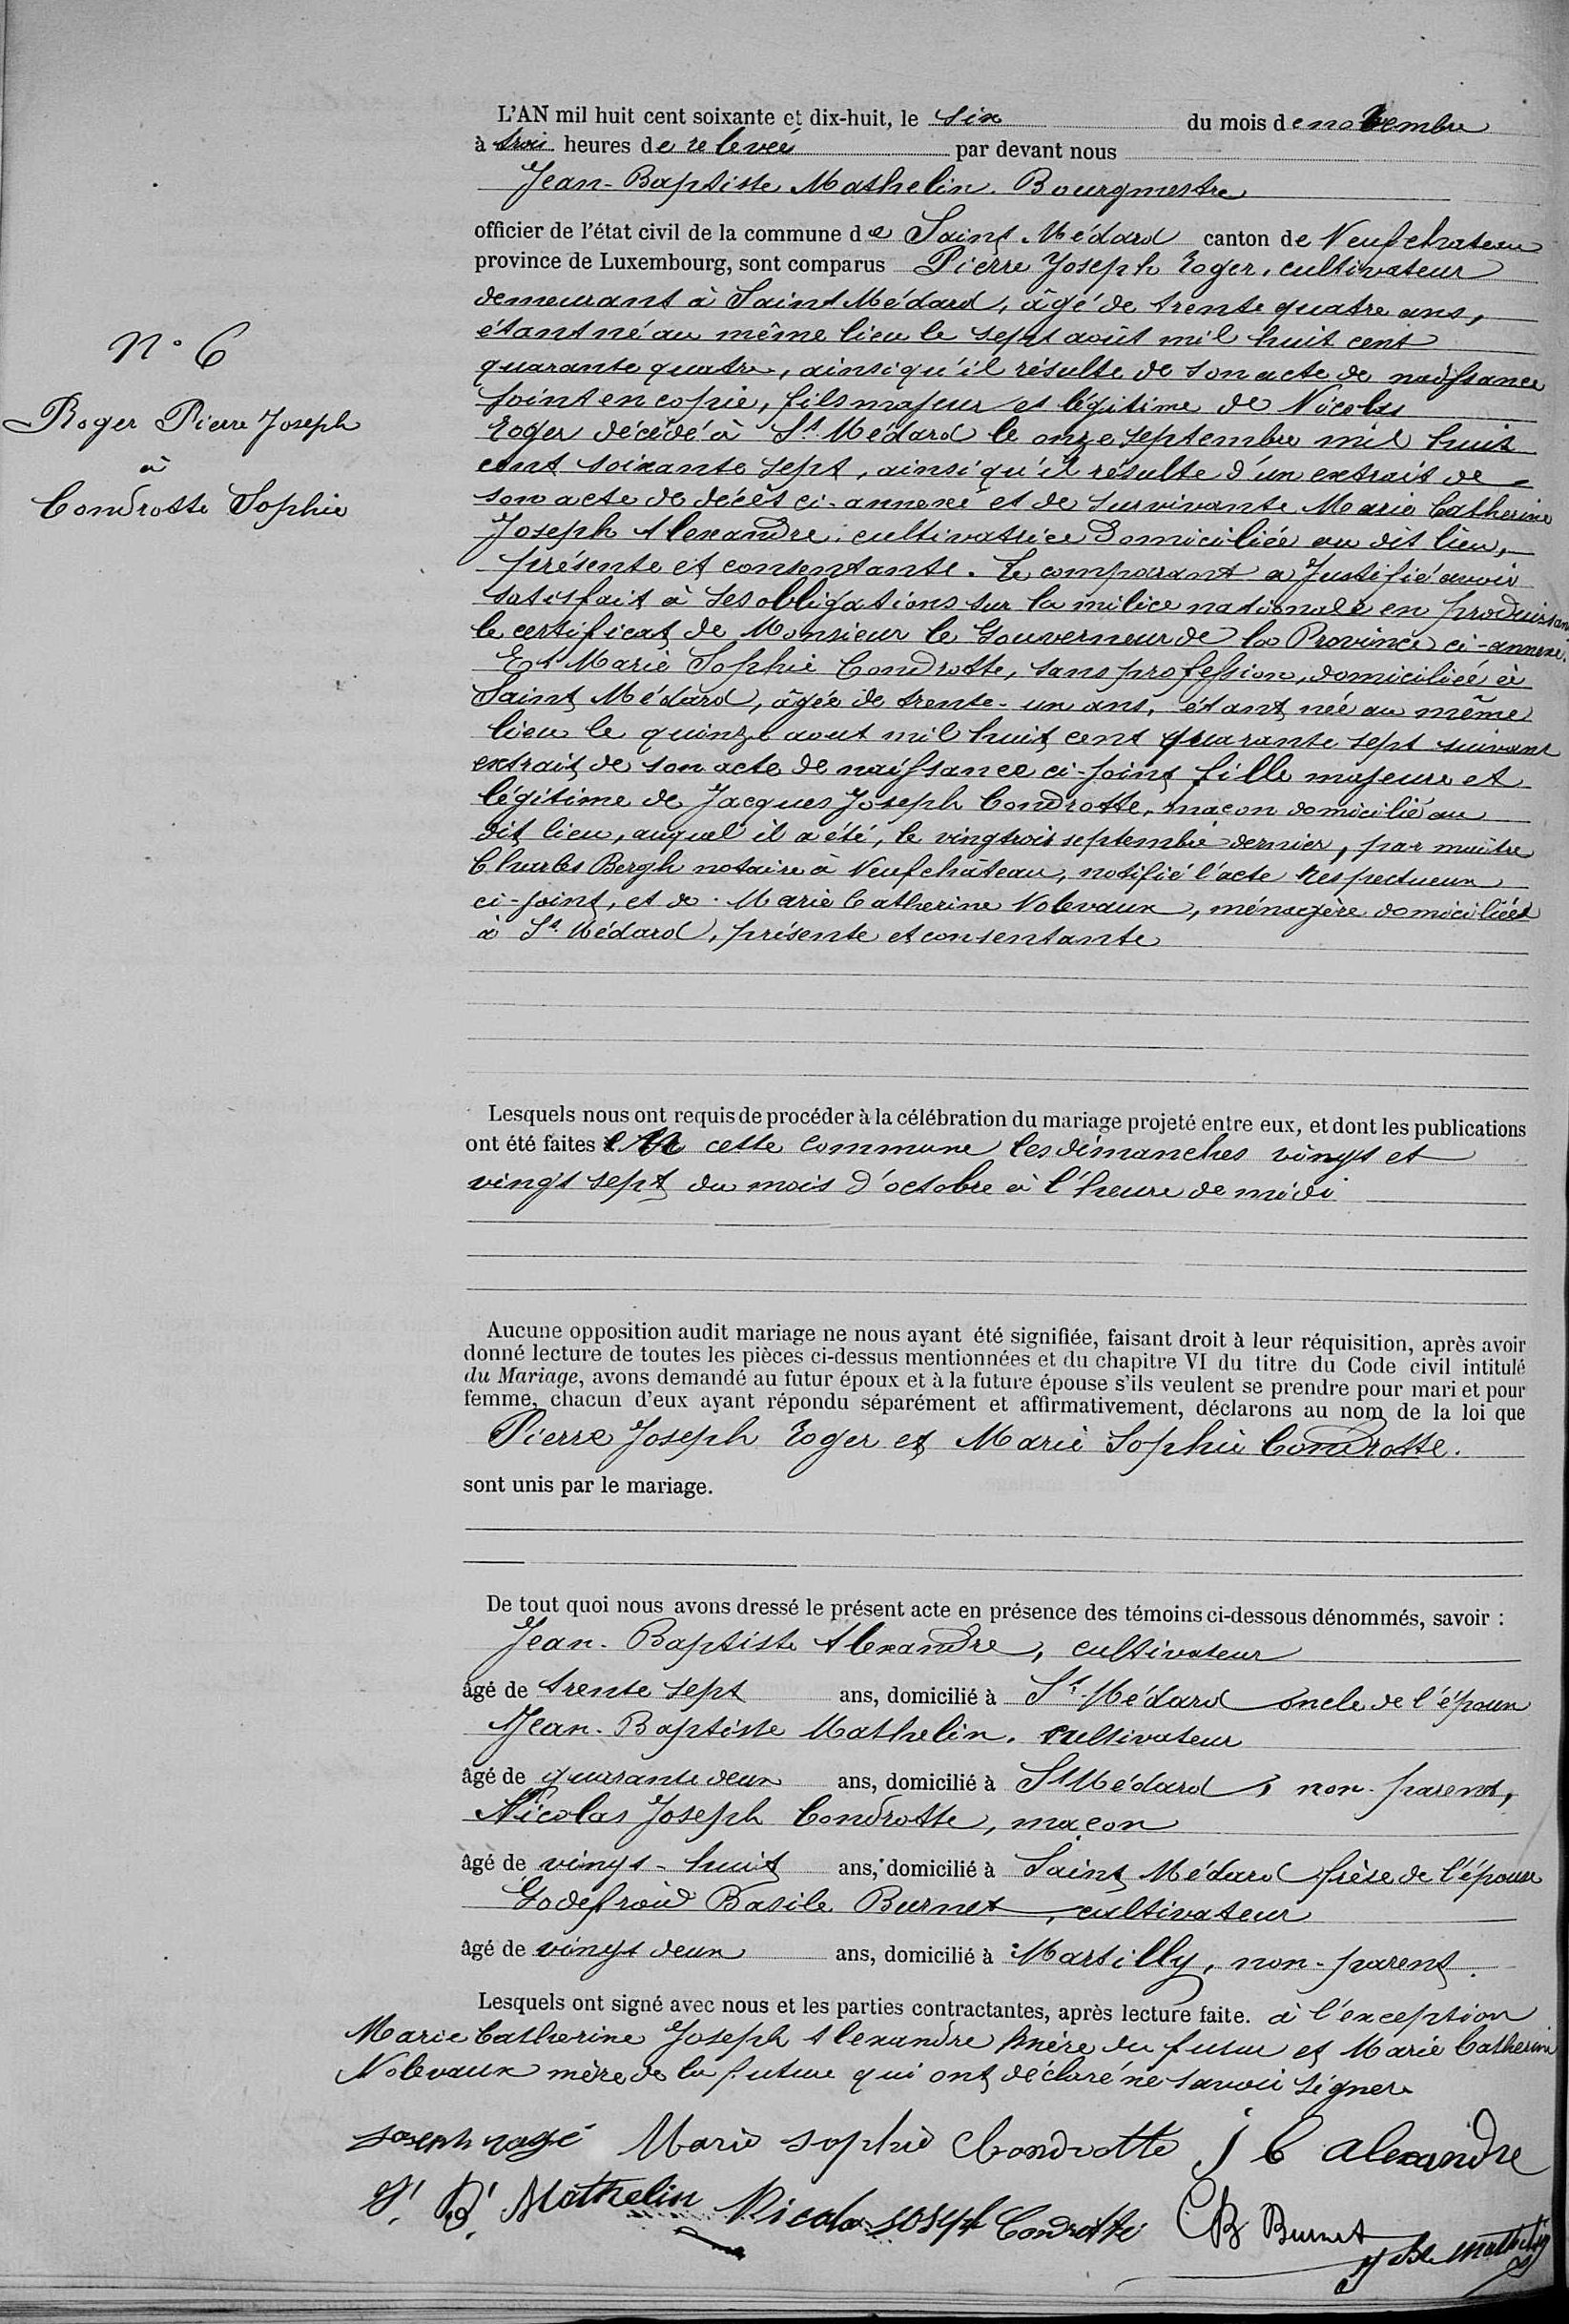 N° 6
Roger Pierre Joseph
à
Condrotte Sophie
L'AN mil huit cent soixante et dix-huit, le six du mois de novembre
à trois heures de relevée par devant nous
Jean-Baptiste Mathelin. Bourgmestre
officier de l'état civil de la commune de Saint Médard canton de Neufchateau
province de Luxembourg, sont comparus Pierre Joseph Roger, cultivateur
demeurant à Saint Médard, âgé de trente quatre ans,
étant né au même lieu le sept août mil huit cent
quarante quatre, ainsi qu'il résulte de son acte de naissance
joint en copie, fils majeur et légitime de Nicolas
Roger décédé à St Médard le onze septembre mil huit
cent soixante sept, ainsi qu'il résulte d'un extrait de
son acte de décès ci-annexé et de survivante Marie Catherine
Joseph Alexandre, cultivatrice domiciliée au dit lieu,
présente et consentante. Le comparant a justifié avoir
satisfait à ses obligations sur la milice nationale en produisant
le certificat de Monsieur le Gouverneur de la Province ci-annexé.
Et Marie Sophie Condrotte, sans profession, domiciliée à
Saint Médard, âgée de trente-un ans, étant née au même
lieu le quinze aout mil huit cent quarante sept suivant
extrait de son acte de naissance ci-joint fille majeure et
légitime de Jacques Joseph Condrotte, maçon domicilié au
dit lieu, auquel il a été, le vingtrois septembre dernier, par maître
Charles Bergh notaire à Neufchâteau, notifié l'acte respectueux
ci-joint, et de Marie Catherine Nolevaux, ménagère domiciliée
à St Médard, présente et consentante
Lesquels nous ont requis de procéder à la célébration du mariage projeté entre eux, et dont les publications
ont été faites en cette commune les dimanches vingt et
vingt sept du mois d'octobre à l'heure de midi
Aucune opposition audit mariage ne nous ayant été signifiée, faisant droit à leur réquisition, après avoir
donné lecture de toutes les pièces ci-dessus mentionnées et du chapitre VI du titre du Code civil intitulé
du Mariage, avons demandé au futur époux et à la future épouse s'ils veulent se prendre pour mari et pour
femme, chacun d'eux ayant répondu séparément et affirmativement, déclarons au nom de la loi que
Pierre Joseph Roger et Marie Sophie Condrotte.
sont unis par le mariage.
De tout quoi nous avons dressé le présent acte en présence des témoins ci-dessous dénommés, savoir :
Jean-Baptiste Alexandre, cultivateur
âgé de trente sept ans, domicilié à St Médard oncle de l'époux
Jean-Baptiste Mathelin, cultivateur
âgé de quarante deux ans, domicilié à St Médard, non-parent,
Nicolas Joseph Condrotte, maçon
âgé de vingt-huit ans, domicilié à Saint Médard frère de l'épouse
Godefroid Basile Burnet, cultivateur
âgé de vingt deux ans, domicilié à Martilly, non-parent.
Lesquels ont signé avec nous et les parties contractantes, après lecture faite. à l'exception
Marie Catherine Joseph Alexandre mère du futur et Marie Catherine
Nolevaux mère de la future qui ont déclaré ne savoir signer
Joseph rogé Marie sophie Condrotte J B alexandre
J. B. Mathelin Nicolas Joseph Condrotte GB Burnet
J Bte Mathelin